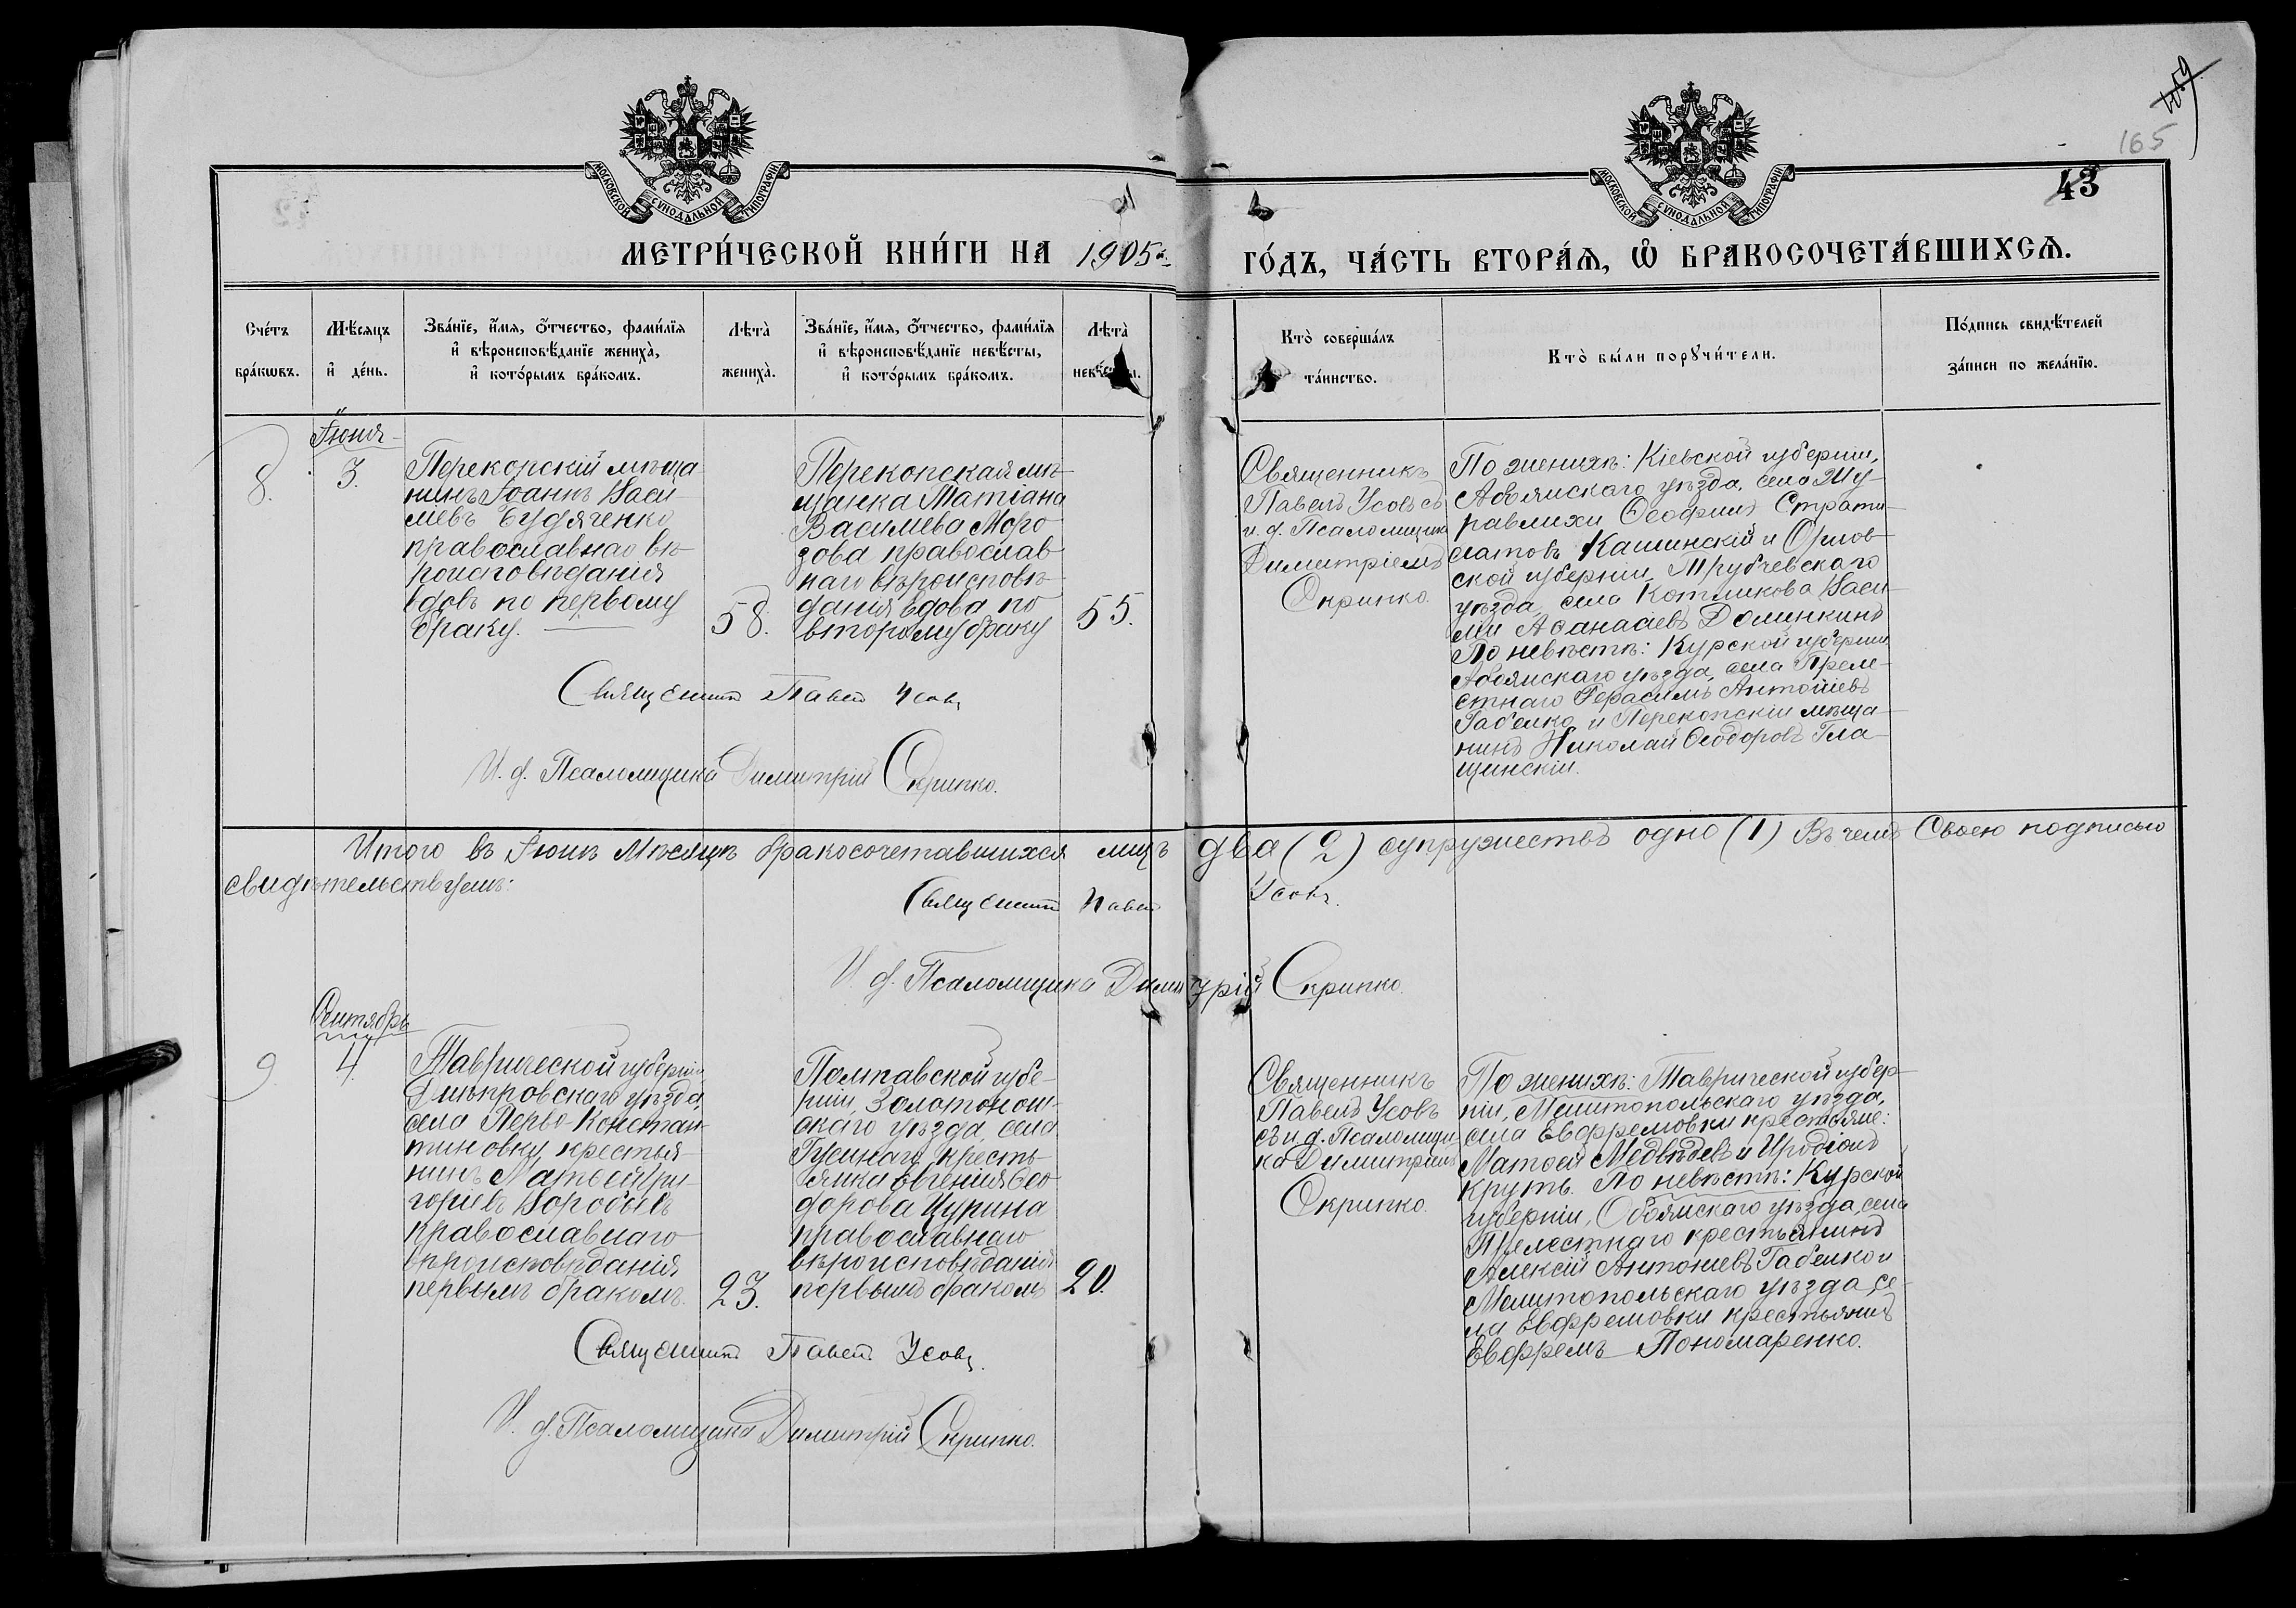 159
165
43
МОСКОВСКОЙ СѴНОДАЛЬНОЙ ТИПОГРАФІИ
МОСКОВСКОЙ СѴНОДАЛЬНОЙ ТИПОГРАФІИ
МЕТРИ́ЧЕСКОЙ КНИ́ГИ НА 1905 й
ГО́ДЪ, ЧА́СТЬ ВТОРА́Ѧ, Ѽ БРАКОСОЧЕТА́ВШИХСѦ.
Сче́тъ бра́кѡвъ.
Мѣ́сѧцъ и҆ де́нь.
Зва́нїе, и҆́мѧ, ѻ҆́тчество, фами́лїѧ и҆ вѣроисповѣ́данїе жениха̀, и҆ кото́рымъ бра́комъ.
Лѣта̀ жениха̀.
Зва́нїе, и҆́мѧ, ѻ҆́тчество, фами́лїѧ и҆ вѣроисповѣ́данїе невѣ́сты, и҆ кото́рымъ бра́комъ.
Лѣта̀ невѣ́сты.
Кто̀ соверша́лъ та́инство.
Кто̀ бы́ли порꙋчи́тели.
По́дпись свидѣ́телей за́писи по жела́нїю.
8.
Іюня
3.
Перекопскій мѣща-
нинъ Іоаннъ Васи-
ліевъ Будяченко
православнаго вѣ-
роисповѣданія
вдовъ по первому
браку.
58.
Перекопская мѣ-
щанка Татіана
Василіева Моро-
зова православ-
наго вѣроисповѣ-
данія вдова по
второму браку
55.
Священникъ
Павелъ Усовъ съ
и. д. Псаломщика
Димитріемъ
Скрипко.
По женихѣ: Кіевской губерніи,
уѣзда, села Жу-
равлихи Ѳеофилъ Страти-
латовъ Кашинскій и Орлов-
ской губерніи, Трубчевскаго
уѣзда, села Котликова Васи-
лій Аѳанасіевъ Долинкинъ
По невѣстѣ: Курской губерніи
Обоянскаго уѣзда, села Преле-
стнаго Герасимъ Антоніевъ
Габелко и Перекопскій мѣща-
нинъ Николай Ѳеодоровъ Гла-
щинскій.
Священникъ Павелъ Усовъ
И. д. Псаломщика Димитрій Скрипко.
Итого въ Іюнѣ Мѣсяцѣ бракосочетавшихся лицъ два (2) супружествъ одно (1) Въ чемъ Своею подписью
свидѣтельствуемъ:
Священникъ Павелъ Усовъ.
И. д. Псаломщика Димитрій Скрипко.
9.
Сентябрь
4.
Таврической губерніи
Днѣпровскаго уѣзда,
села Перво-Констан-
тиновки, крестья-
нинъ Матѳей Гри-
горіевъ Воробьевъ
православнаго
вѣроисповѣданія
первымъ бракомъ.
23.
Полтавской губе-
рніи, Золотонош-
скаго уѣзда, села
Гусинаго кресть-
янка Евгенія Ѳео-
дорова Цурина
православнаго
вѣроисповѣданія
первымъ бракомъ
20.
Священникъ
Павелъ Усовъ
съ и. д. Псаломщи-
ка Димитріемъ
Скрипко.
По женихѣ: Таврической губер-
ніи, Мелитопольскаго уѣзда,
села Евфремовки крестьяне:
Матѳей Медвѣдевъ и Иродіонъ
Круть. По невѣстѣ: Курской
губерніи, Обоянскаго уѣзда, села
Прелестнаго крестьянинъ
Алексій Антоніевъ Габелко и
Мелитопольскаго уѣзда, се-
ла Евфремовки крестьянинъ
Евфремъ Пономаренко.
Священникъ Павелъ Усовъ.
И. д. Псаломщика Димитрій Скрипко.